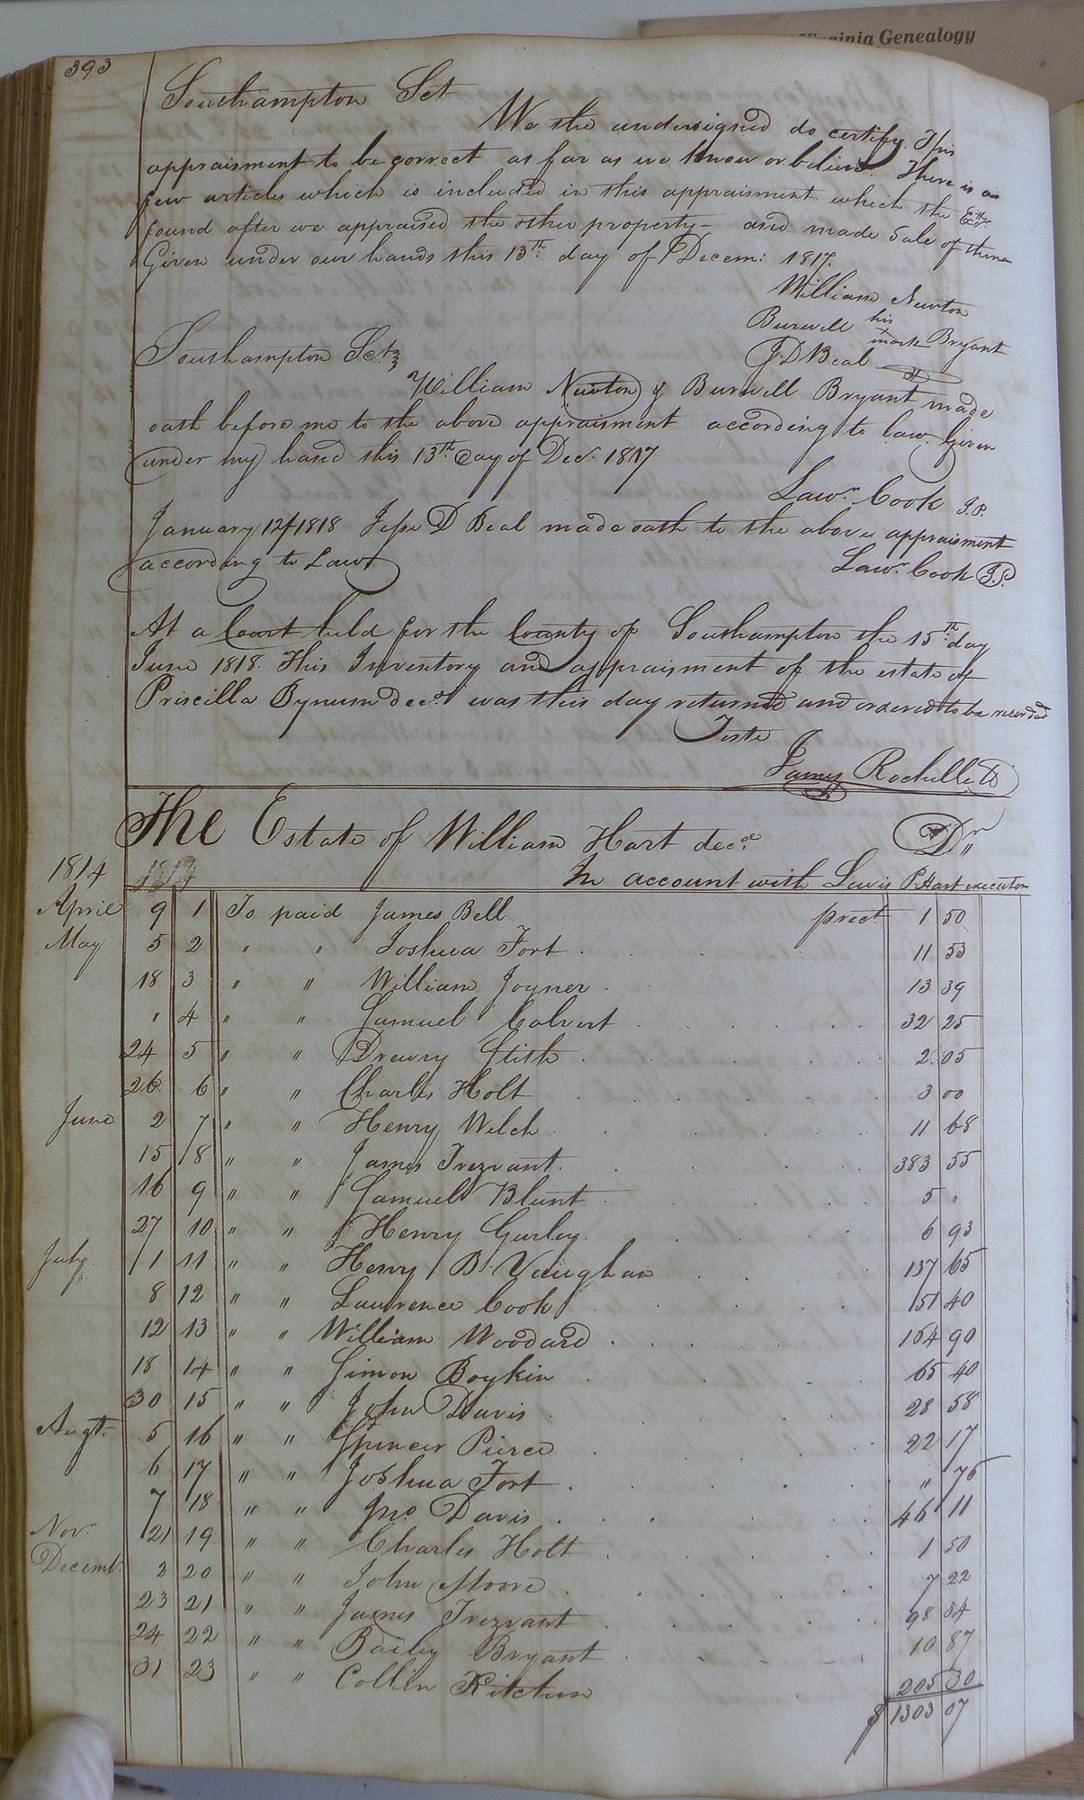 Virginia Genealogy
393
Southampton Sct
We the undersigned do certify This
appraisment to be correct as far as we know or believe There is a
few articles which is included in this appraisment which the Exr
found after we appraised the other property - and made Sale of them
Given under our hands this 13th day of Decem: 1817.
William Newton
Burwell his mark Bryant
J D Beal
Southampton Sct
William Newton & Burwell Bryant made
oath before me to the above appraisment according to law. Given
under my hand this 13th day of Decr. 1817
Lawr. Cook J.P.
January 12th 1818 Jesse D Beal made oath to the above appraisment
according to Law
Lawr. Cook J.P.
At a Court held for the County of Southampton the 15th day
June 1818. This Inventory and appraisment of the estate of
Priscilla Bynum decd. was this day returned and ordered to be recorded
Teste
James Rochelle
The Estate of William Hart decd. Dr
1814 In account with Lewis P. Hart executor
April 9 1 To paid James Bell prect 1 50
May 5 2 " " Joshua Fort 11 53
18 3 " " William Joyner 13 39
" 4 " " Samuel Calvert 32 25
24 5 " " Drewry Stith 2 05
26 6 " " Charles Holt 3 00
June 2 7 " " Henry Welch 11 68
15 8 " " James Trezvant 383 55
16 9 " " Samuel Blunt 5 "
27 10 " " Henry Gurley 6 93
July 1 11 " " Henry B. Vaughan 137 65
8 12 " " Lawrence Cook 51 40
12 13 " " William Woodard 164 90
18 14 " " Simon Boykin 65 40
30 15 " " John Davis 28 58
Augt. 5 16 " " Spencer Pierce 22 17
6 17 " " Joshua Fort " 75
7 18 " " Jno Davis 46 11
Novr 21 19 " " Charles Holt 1 50
Decemb. 2 20 " " John Moore 7 22
23 21 " " James Trezvant 98 34
24 22 " " Bailey Bryant 10 87
31 23 " " Collin Kitchen 205 30
$ 1303 07